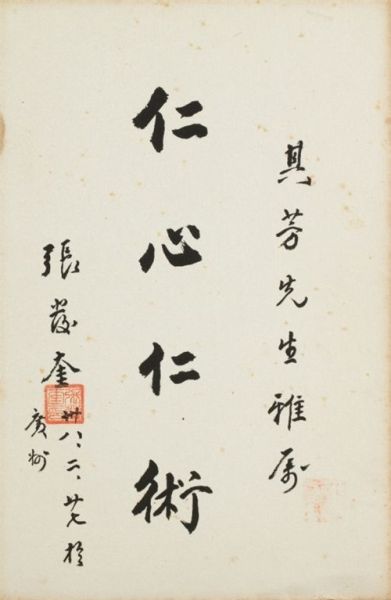 其芳先生雅属
仁心仁術
張發奎
卅八、二、廿七於
廣州